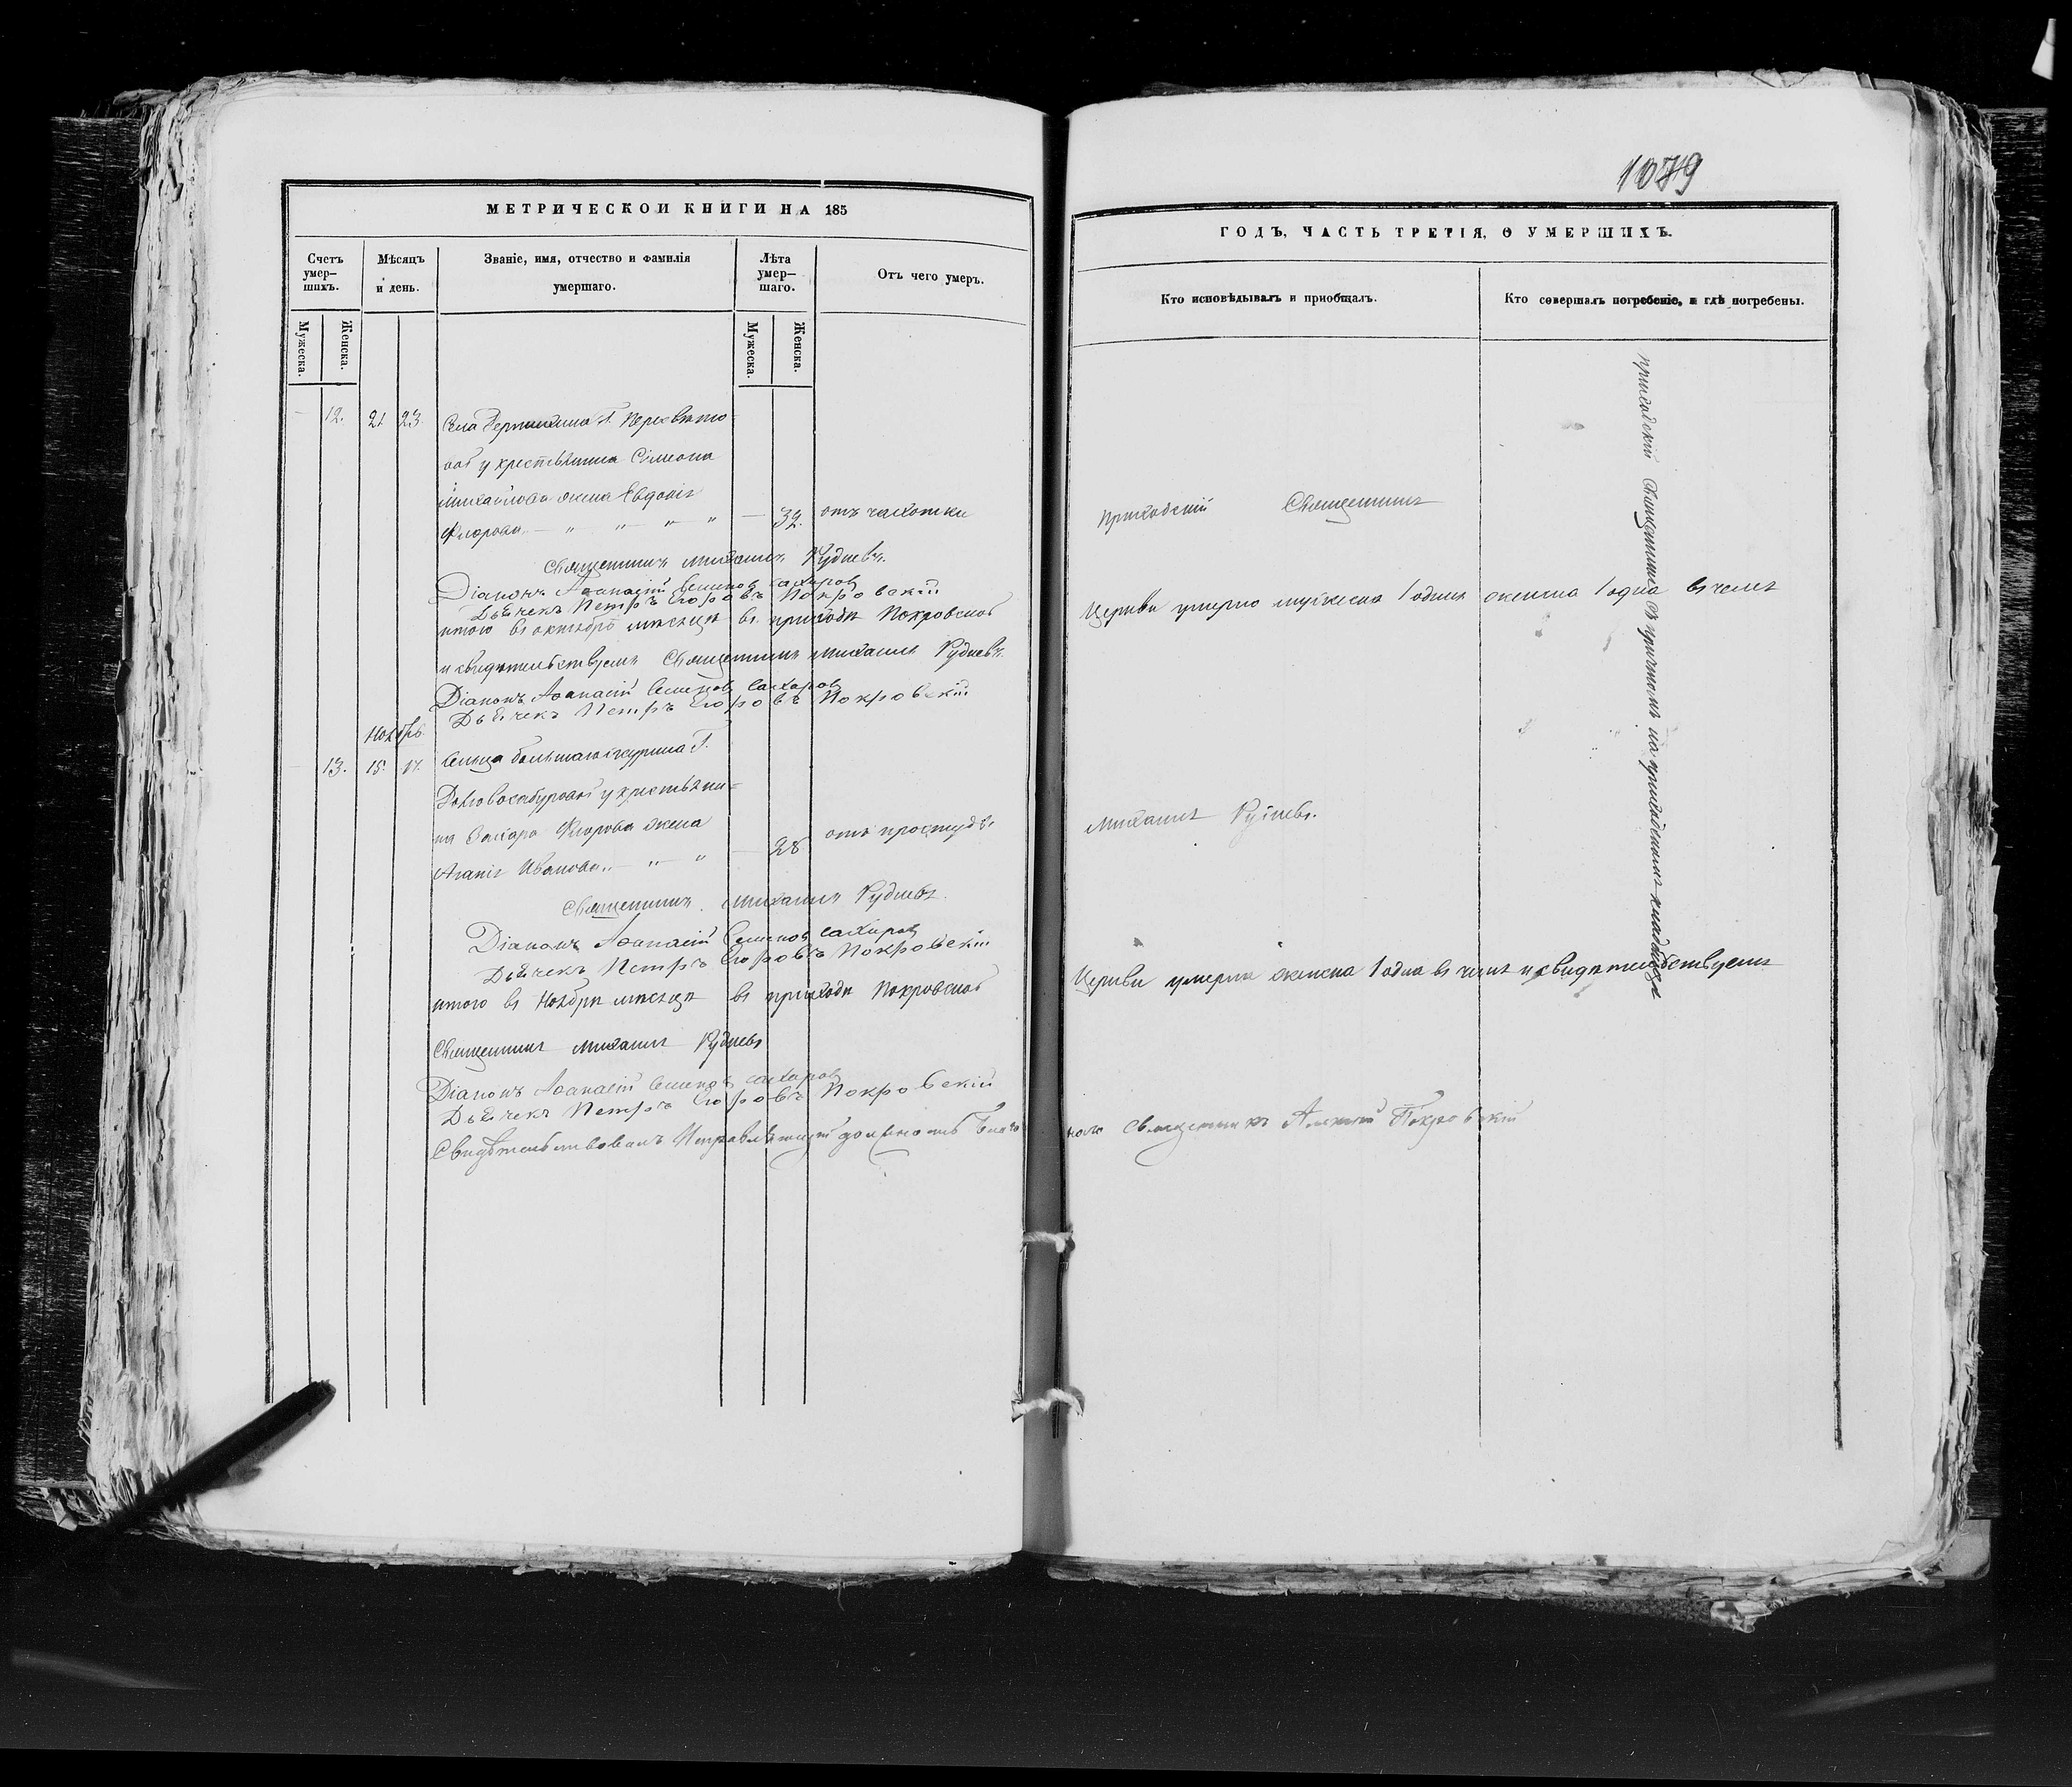 1079
МЕТРИЧЕСКОЙ КНИГИ НА 185
ГОДЪ, ЧАСТЬ ТРЕТІЯ, О УМЕРШИХЪ.
Счетъ умер-шихъ.
Мѣсяцъ и день.
Званіе, имя, отчество и фамилія умершаго.
Лѣта умер-шаго.
Отъ чего умеръ.
Кто исповѣдывалъ и приобщалъ.
Кто совершалъ погребеніе, и гдѣ погребены.
Мужеска.
Женска.
Мужеска.
Женска.
12. 21 23. Села Г.
вой у крестьянина Симеона
Михайлова жена Евдокія
Флорова 32. отъ чахотки
Приходскій Священникъ
Священникъ Михаилъ Рудневъ.
Діаконъ Аѳанасій Семеновъ Сахаровъ
Дьячекъ Петръ Егоровъ Покровскій
итого въ октябрѣ мѣсяцѣ въ приходѣ Покровской
Церкви умерло мужеска 1 одинъ женска 1 одна въ чемъ
и свидѣтельствуемъ Священникъ Михаилъ Рудневъ.
Діаконъ Аѳанасій Семеновъ Сахаровъ
Дьячекъ Петръ Егоровъ Покровскій
Ноябрь.
13. 15. 17. Сельца Г.
у крестьяни-
на Захара Флорова жена
Агапія Иванова 28 отъ простуды
Михаилъ Рудневъ.
Священникъ Михаилъ Рудневъ.
Діаконъ Аѳанасій Семеновъ Сахаровъ
Дьячекъ Петръ Егоровъ Покровскій
итого въ Ноябрѣ мѣсяцѣ въ приходѣ Покровской
Церкви умерла женска 1 одна въ чемъ и свидѣтельствуемъ
Священникъ Михаилъ Рудневъ
Діаконъ Аѳанасій Семеновъ Сахаровъ
Дьячекъ Петръ Егоровъ Покровскій
Свидѣтельствовалъ Исправляющій должность Благо
Священникъ Алексій Покровскій
приходскій Священникъ съ причтомъ на приходскомъ кладбищѣ